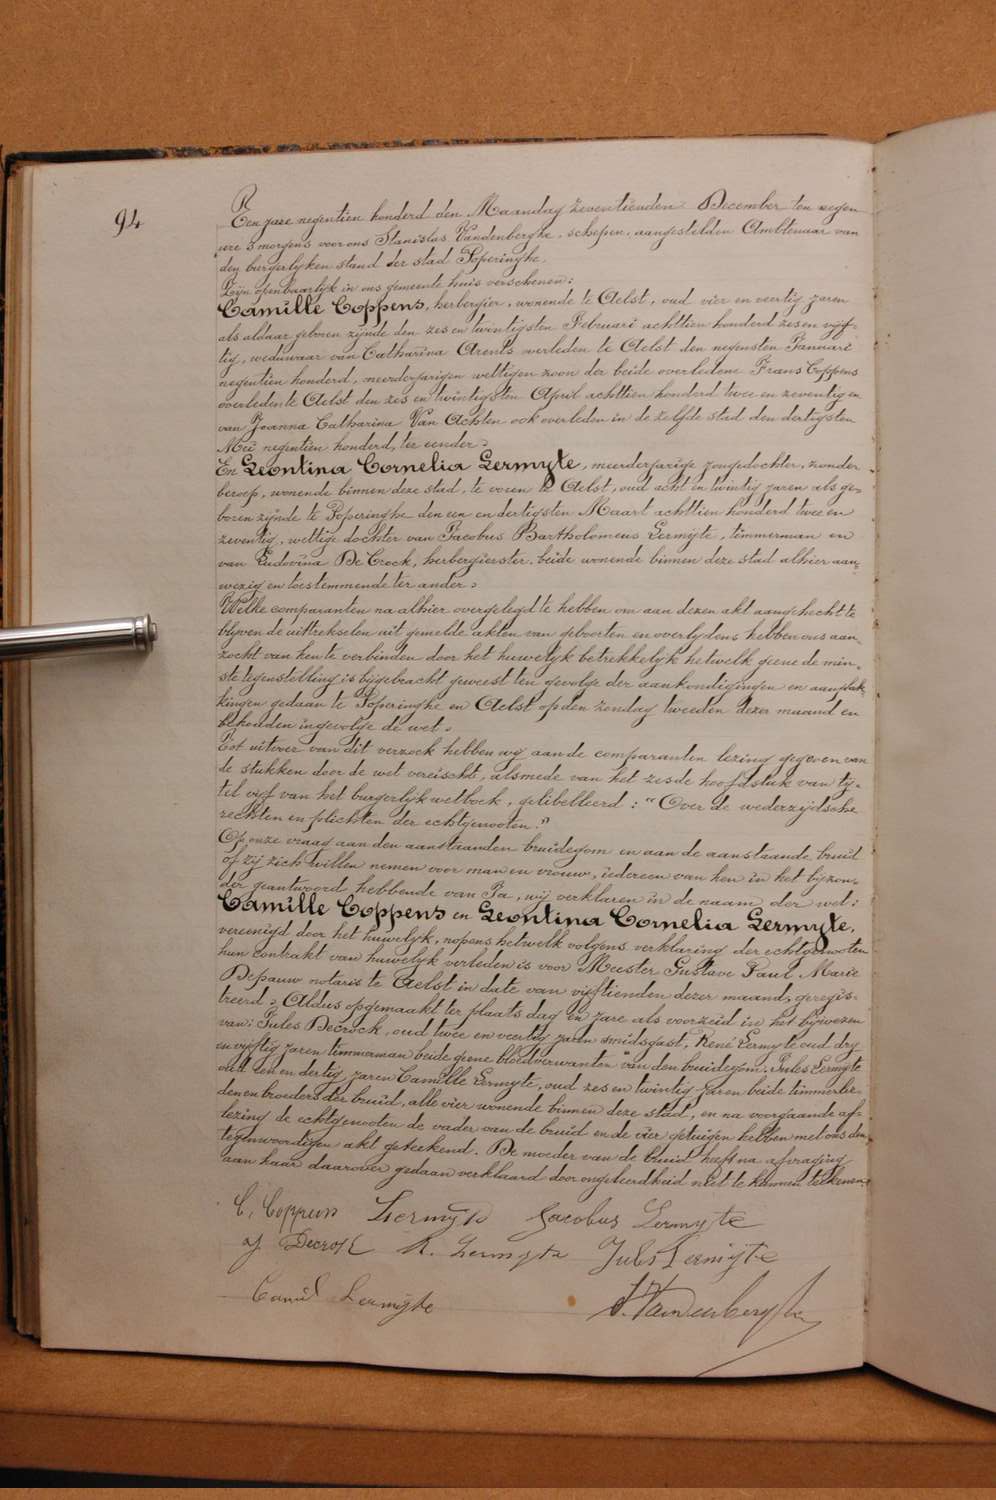 94
Een jare negentien honderd den Maandag zeventienden December ten negen
ure 's morgens voor ons Stanislas Vandenberghe, schepen, aangestelden Ambtenaar van
den burgerlyken stand der stad Poperinghe,
Zijn openbaarlyk in ons gemeente huis verschenen:
Camille Coppens, herbergier, wonende te Aelst, oud vier en veertig jaren
als aldaar geboren zijnde den zes en twintigsten Februari achttien honderd zes en vyf-
tig, weduwaar van Catharina Arents overleden te Aelst den negensten Januari
negentien honderd, meerderjarigen wettigen zoon der beide overledene Frans Coppens
overleden te Aelst den zes en twintigsten April achttien honderd twee en zeventig en
van Joanna Catharina Van Achten ook overleden in de zelfde stad den dertigsten
Mei negentien honderd, ter eender;
En Leontina Cornelia Lermyte, meerderjarige jongedochter, zonder
beroep, wonende binnen deze stad, te voren te Aelst, oud acht en twintig jaren als ge-
boren zijnde te Poperinghe den een en dertigsten Maart achttien honderd twee en
zeventig, wettige dochter van Jacobus Bartholomeus Lermyte, timmerman en
van Ludovina De Crock, herbergierster, beide wonende binnen deze stad alhier aan-
wezig en toestemmende ter ander;
Welke comparanten na alhier overgelegd te hebben om aan dezen akt aangehecht te
blyven de uittrekselen uit gemelde akten van geboorten en overlydens hebben ons aan-
zocht van hen te verbinden door het huwelyk betrekkelyk hetwelk geene de min-
ste tegenstelling is bygebracht geweest ten gevolge der aankondigingen en aanplak-
kingen gedaan te Poperinghe en Aelst op den zondag tweeden dezer maand en
behouden ingevolge de wet.
Tot uitever van dit verzoek hebben wy aan de comparanten lezing gegeven van
de stukken door de wet vereischt, alsmede van het zesde hoofdstuk van ty-
tel vyf van het burgerlyk wetboek, gelibelleerd: "Over de wederzydsche
rechten en plichten der echtgenooten."
Op onze vraag aan den aanstaanden bruidegom en aan de aanstaande bruid
of zij zich willen nemen voor man en vrouw, iedereen van hen in het byzon-
der geantwoord hebbende van Ja, wij verklaren in de naam der wet:
Camille Coppens en Leontina Cornelia Lermyte,
vereenigd door het huwelyk, nopens hetwelk volgens verklaring der echtgenooten
hun contrakt van huwelyk verleden is voor Meester Gustave Paul Marie
Depauw notaris te Aelst in date van vyftienden dezer maand, geregis-
treerd; Aldus opgemaakt ter plaats dag en jare als voorzeid in het bijwezen
van: Jules Decrock, oud twee en veertig jaren smidsgast, René Lermyte oud dry
en vyftig jaren timmerman beide geene bloedverwanten van den bruidegom. Jules Lermyte
oud een en dertig jaren Camille Lermyte, oud zes en twintig jaren beide timmerlie-
den en broeders der bruid, alle vier wonende binnen deze stad, en na voorgaande af-
lezing de echtgenooten de vader van de bruid en de vier getuigen hebben met ons den
tegenwoordigen akt geteekend. De moeder van de bruid heeft na afvraging
aan haar daarover gedaan verklaard door ongeleerdheid niet te kunnen teekenen.
C. Coppens Lermyte Jacobus Lermyte
J Decrock R. Lermyte Jules Lermyte
Camil Lermyte S. Vandenberghe